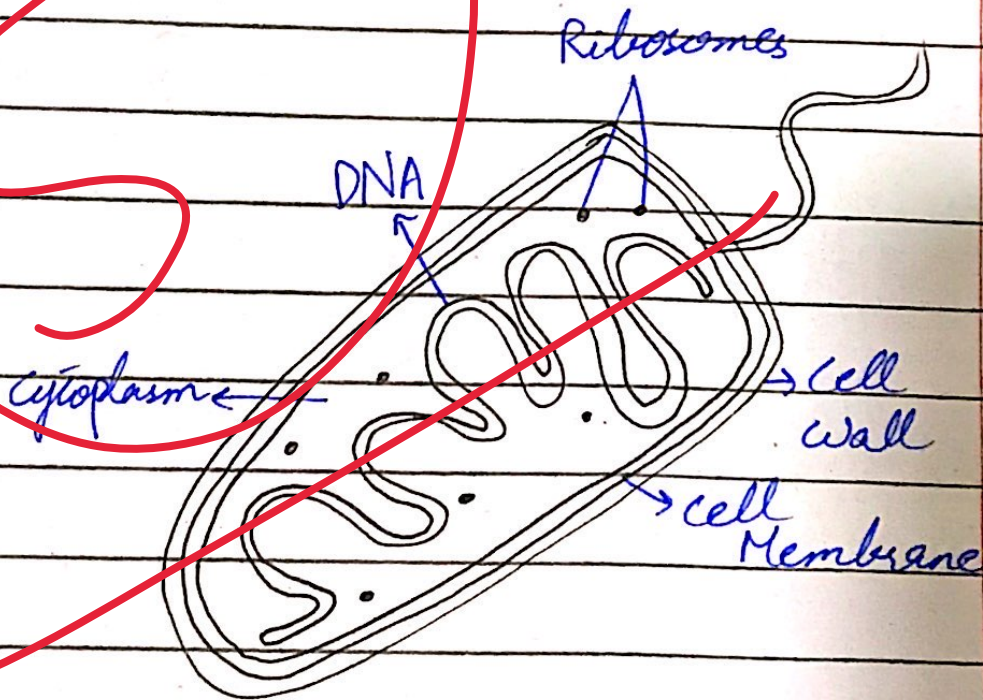 Ribosomes
DNA
Cytoplasm
Cell
Wall
Cell
Membrane